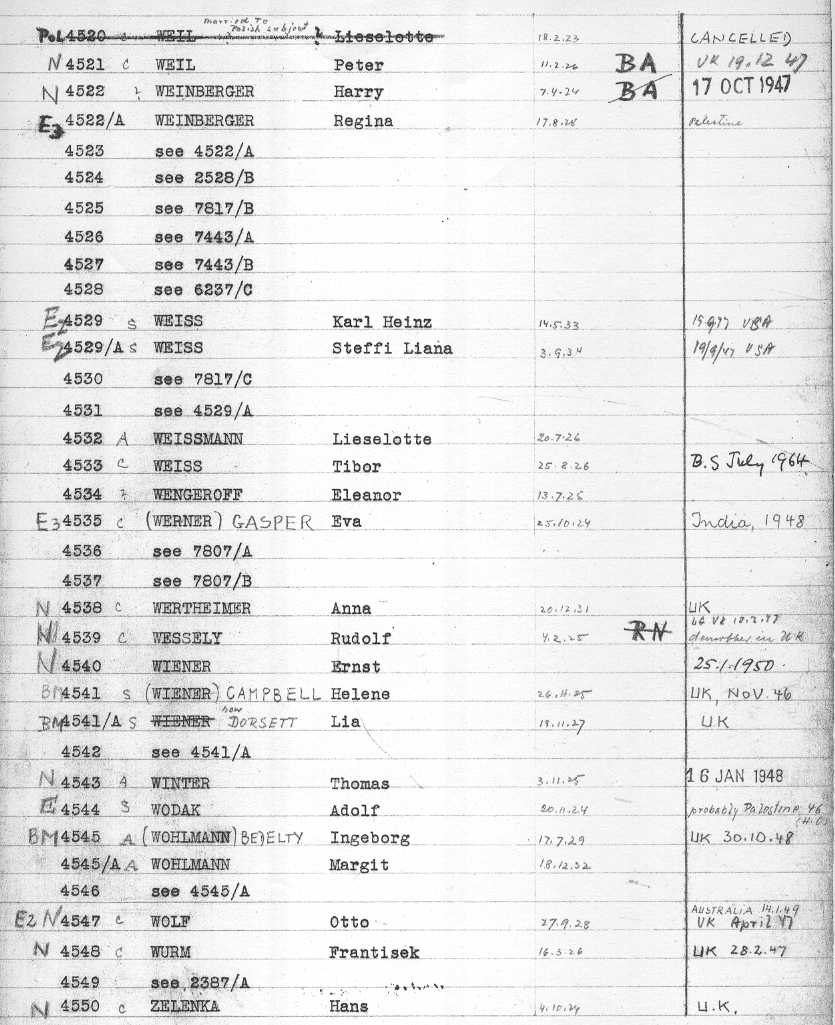 married to
Polish subject
PoL 4520 c WEIL Lieselotte 18.2.23 CANCELLED
N 4521 c WEIL Peter 11.2.26 BA UK 19.12 47
N 4522 WEINBERGER Harry 7.4.24 BA 17 OCT 1947
E3 4522/A WEINBERGER Regina 17.8.28 Palestine
4523 see 4522/A
4524 see 2528/B
4525 see 7817/B
4526 see 7443/A
4527 see 7443/B
4528 see 6237/C
E2 4529 S WEISS Karl Heinz 14.5.33 USA
E2 4529/A S WEISS Steffi Liana 3.9.34 19/9/47 USA
4530 see 7817/C
4531 see 4529/A
4532 A WEISSMANN Lieselotte 20.7.26
4533 C WEISS Tibor 25.8.26 B.S July 1964
4534 WENGEROFF Eleanor 13.7.26
E3 4535 C (WERNER) GASPER Eva 25.10.24 India, 1948
4536 see 7807/A
4537 see 7807/B
N 4538 C WERTHEIMER Anna 20.12.31 UK
N 4539 C WESSELY Rudolf 4.2.25 RN in UK
N 4540 WIENER Ernst 25.1.1950.
BM 4541 S (WIENER) CAMPBELL Helene 26.11.25 UK, NOV. 46
now
BM 4541/A S WIENER DORSETT Lia 19.11.27 UK
4542 see 4541/A
N 4543 A WINTER Thomas 3.11.25 16 JAN 1948
E 4544 S WODAK Adolf 20.11.24 probably Palestine 46
BM 4545 A (WOHLMANN) BEDELTY Ingeborg 17.7.29 UK 30.10.48
4545/A A WOHLMANN Margit 18.12.32
4546 see 4545/A
AUSTRALIA 14.1.49
E2 N 4547 C WOLF Otto 27.9.28 UK April 47
N 4548 C WURM Frantisek 16.3.26 UK 28.2.47
4549 see 2387/A
N 4550 C ZELENKA Hans 4.10.24 U.K.